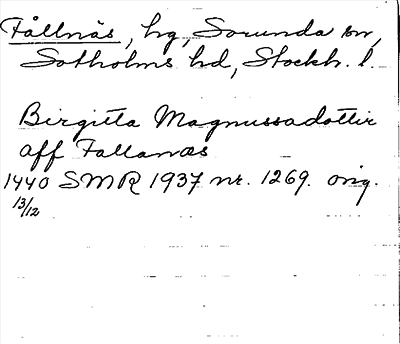 Fållnäs, hg, Sorunda sn,
Sotholms hd, Stockh. l.
Birgitta Magnussadotter
aff Fallanæs
1440 SMR 1937 nr. 1269. orig.
13/12